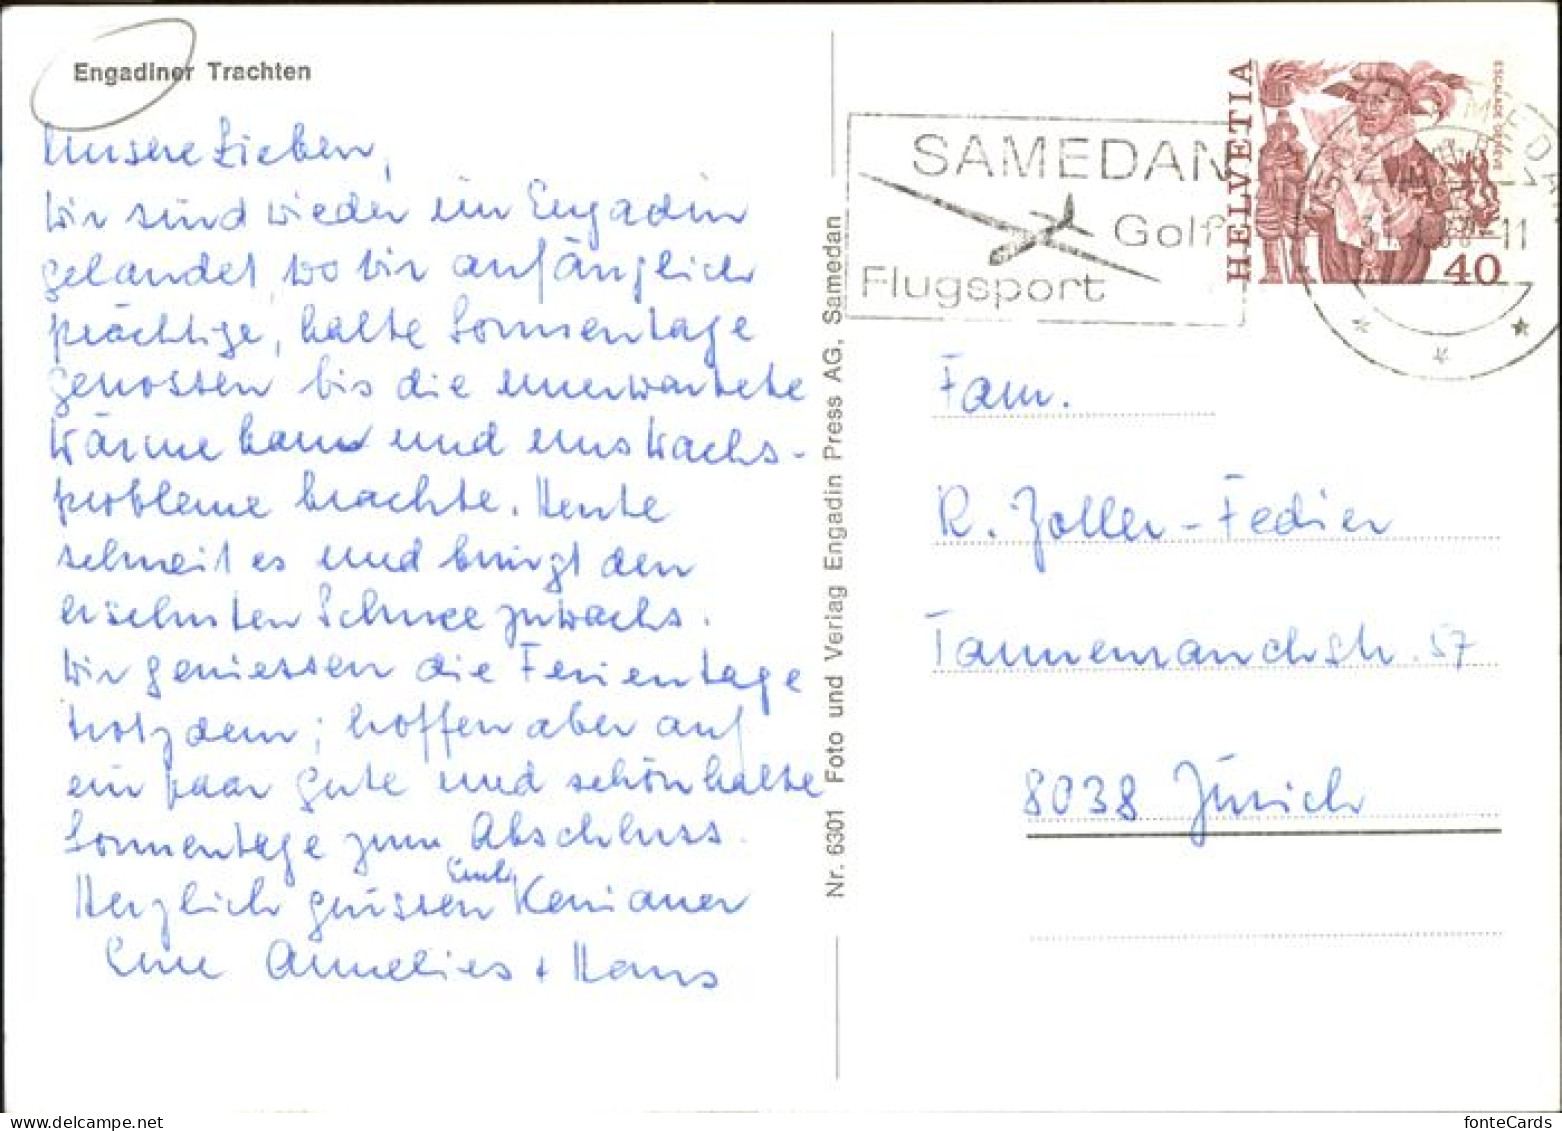 Engadiner Trachten
Unsere Lieben,
Wir sind wieder im Engadin
gelandet, wo wir anfänglich
prächtige, kalte Sonnentage
genossen bis die unerwartete
Wärme kam und uns Wachs-
probleme brachte. Heute
schneit es und bringt den
ersehnten Schneezuwachs.
Wir geniessen die Ferientage
trotzdem; hoffen aber auf
ein paar gute und schön kalte
Sonnentage zum Abschluss.
Herzlich grüssen Euch
Eure Annelies + Hans
Nr. 6301 Foto und Verlag Engadin Press AG, Samedan
SAMEDAN
Golf
Flugsport
HELVETIA
40
Fam.
R. Zoller-Fedier
Tannenrauchstr. 57
8038 Zürich
fonteCards